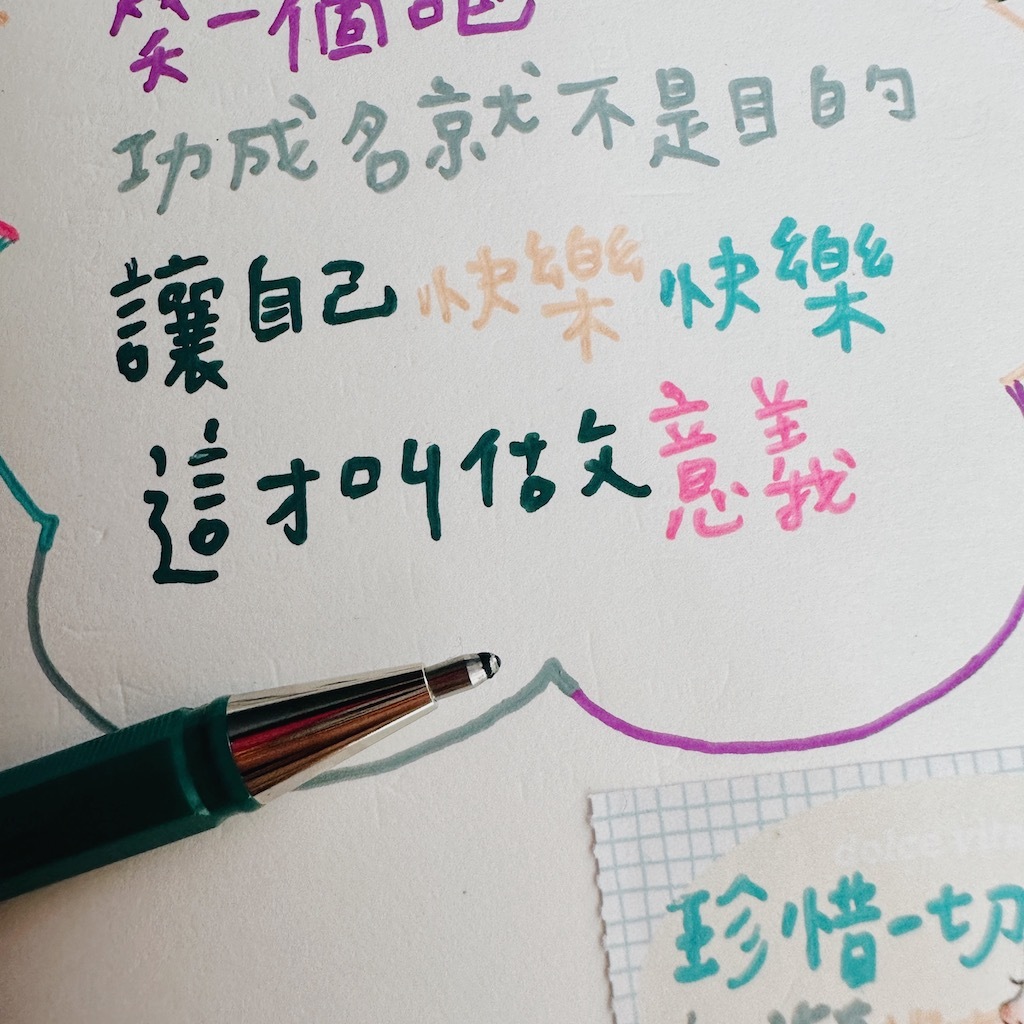 笑一個吧
功成名就不是目的
讓自己快樂快樂
這才叫做意義
珍惜一切